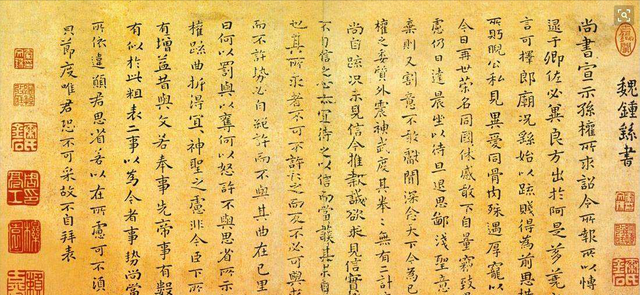 魏鍾繇書
尚書宣示孫權所求詔令所報所以博
逮于卿佐必冀良方出於阿是芻蕘
言可擇郎廟況繇始以疏賤得為前恩橫
所盱睨公私見異愛同骨肉殊遇厚寵以
今日再世榮名同國休慼敢不自量竊致
慮仍日達晨坐以待旦退思鄙淺聖意
棄則又割意不敢獻聞深念天下今為已
權之委質外震神武度其拳拳無有二計
尚自疏況未見信今推款誠欲求見信實
不自信之心亦宜待之以信而當護其未自
也其所求者不可不許許之而反不必可與
而不許勢必自絕許而不與其曲在己里
曰何以罰與以奪何以怒許不與思省所示
權疏曲折得宜宜神聖之慮非今臣下所
有增益昔與文若奉事先帝事有數
有似於此粗表二事以為今者事勢尚當
所依違願君思省若以在所慮可不須
貌節度唯君恐不可采故不自拜表